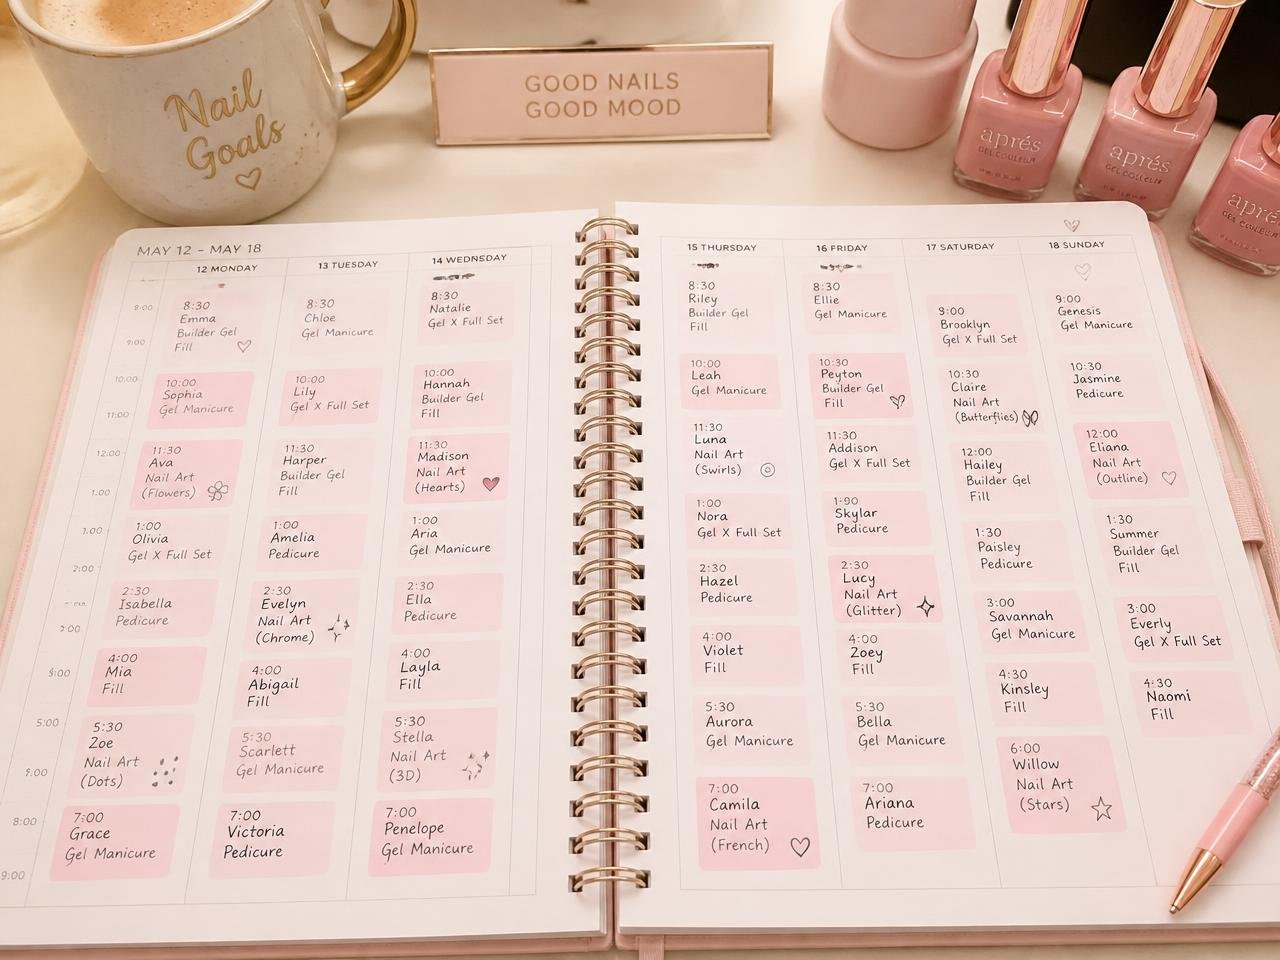 Nail
Goals
GOOD NAILS
GOOD MOOD
aprés
GEL COULEUR
aprés
GEL COULEUR
aprés
GEL COULEUR
MAY 12 - MAY 18
12 MONDAY
8:30
Emma
Builder Gel
Fill
10:00
Sophia
Gel Manicure
11:30
Ava
Nail Art
(Flowers)
1:00
Olivia
Gel X Full Set
2:30
Isabella
Pedicure
4:00
Mia
Fill
5:30
Zoe
Nail Art
(Dots)
7:00
Grace
Gel Manicure
13 TUESDAY
8:30
Chloe
Gel Manicure
10:00
Lily
Gel X Full Set
11:30
Harper
Builder Gel
Fill
1:00
Amelia
Pedicure
2:30
Evelyn
Nail Art
(Chrome)
4:00
Abigail
Fill
5:30
Scarlett
Gel Manicure
7:00
Victoria
Pedicure
14 WEDNSDAY
8:30
Natalie
Gel X Full Set
10:00
Hannah
Builder Gel
Fill
11:30
Madison
Nail Art
(Hearts)
1:00
Aria
Gel Manicure
2:30
Ella
Pedicure
4:00
Layla
Fill
5:30
Stella
Nail Art
(3D)
7:00
Penelope
Gel Manicure
15 THURSDAY
8:30
Riley
Builder Gel
Fill
10:00
Leah
Gel Manicure
11:30
Luna
Nail Art
(Swirls)
1:00
Nora
Gel X Full Set
2:30
Hazel
Pedicure
4:00
Violet
Fill
5:30
Aurora
Gel Manicure
7:00
Camila
Nail Art
(French)
16 FRIDAY
8:30
Ellie
Gel Manicure
10:30
Peyton
Builder Gel
Fill
11:30
Addison
Gel X Full Set
Skylar
Pedicure
2:30
Lucy
Nail Art
(Glitter)
4:00
Zoey
Fill
5:30
Bella
Gel Manicure
7:00
Ariana
Pedicure
17 SATURDAY
9:00
Brooklyn
Gel X Full Set
10:30
Claire
Nail Art
(Butterflies)
12:00
Hailey
Builder Gel
Fill
1:30
Paisley
Pedicure
3:00
Savannah
Gel Manicure
4:30
Kinsley
Fill
6:00
Willow
Nail Art
(Stars)
18 SUNDAY
9:00
Genesis
Gel Manicure
10:30
Jasmine
Pedicure
12:00
Eliana
Nail Art
(Outline)
1:30
Summer
Builder Gel
Fill
3:00
Everly
Gel X Full Set
4:30
Naomi
Fill
8:00
9:00
10:00
11:00
12:00
1:00
1:00
2:00
5:00
8:00
9:00